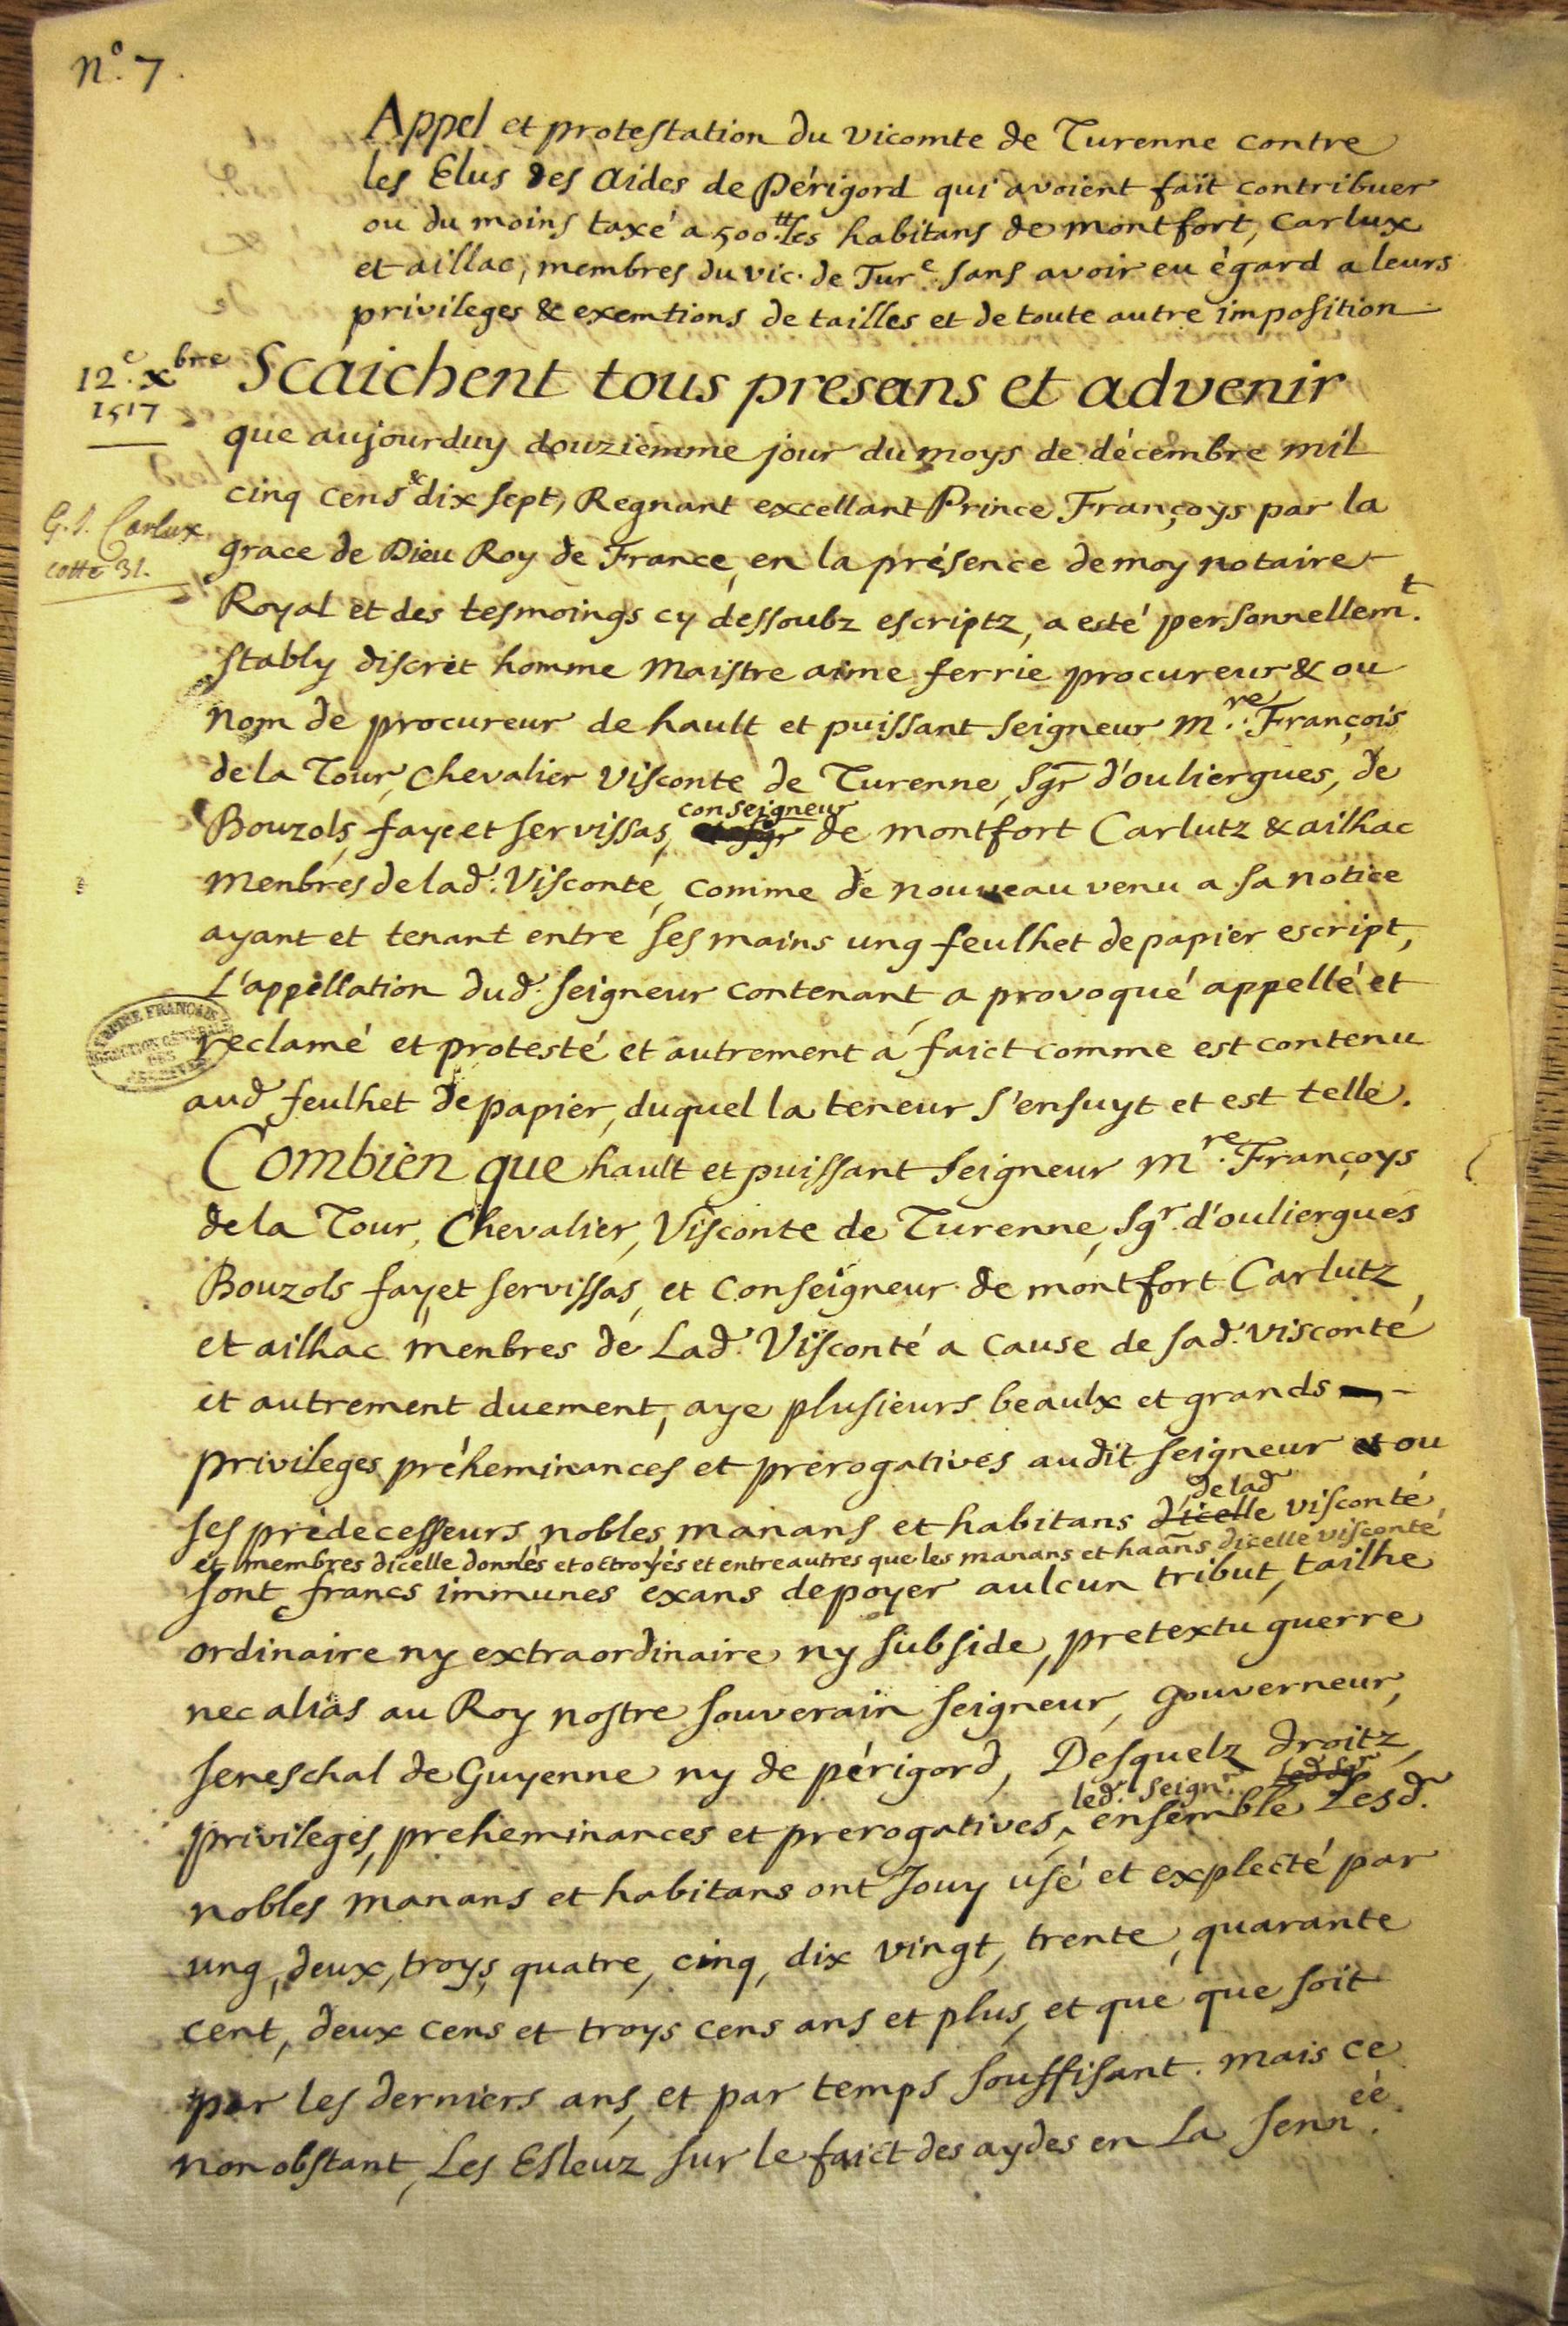 n.° 7.
Appel et protestation du vicomte de Turenne contre
les Elus des aides de Périgord qui avoient fait contribuer
ou du moins taxé a 500.tt les habitans de montfort, Carlux
et aillac, membres du vic. de Tur.e sans avoir eu égard a leurs
privileges & exemtions de tailles et de toute autre imposition
12.e xbre
1517
Scaichent tous presens et advenir
que aujourduy douziemme jour du moys de décembre mil
cinq cens & dix sept, Regnant excellant Prince Françoys par la
G. S. Carlux
cotte 31.
grace de Dieu Roy de France, en la présence de moy notaire
Royal et des tesmoings cy dessoubz escriptz, a esté personnellem.t
stably discret homme Maistre aime ferrie procureur & ou
nom de procureur de hault et puissant seigneur M.re François
de la Tour, Chevalier Visconte de Turenne, sgr d'ouliergues, de
Bouzols, fay et servissas, conseigneur de montfort Carlutz & ailhac
menbres de lad. Visconté, comme de nouveau venu a sa notice
ayant et tenant entre ses mains ung feulhet de papier escript,
L'appellation dud. seigneur contenant, a provoqué appellé et
reclamé et protesté et autrement a faict comme est contenu
aud feulhet de papier, duquel la teneur s'ensuyt et est telle.
Combien que hault et puissant seigneur M.re Françoys
de la Tour, Chevalier, Visconte de Turenne, sgr. d'ouliergues
Bouzols fay et servissas, et Conseigneur de montfort Carlutz,
et ailhac menbres de Lad. Visconté a cause de sad. visconté
et autrement duement, aye plusieurs beaulx et grands
privileges préheminances et prérogatives audit seigneur et ou
ses prédecesseurs nobles manans et habitans d'icelle de lad visconté,
et membres dicelle donnés et octroyés et entre autres que les manans et haãns dicelle visconté
sont francs immunes exans de poyer aulcun tribut, tailhe
ordinaire ny extraordinaire ny subside, pretextu guerre
nec alias au Roy nostre souverain seigneur, gouverneur,
seneschal de Guyenne ny de périgord, Desquelz droitz,
privileges, preheminances et prerogatives, led. seignr. led sgr ensemble Lesd.
nobles manans et habitans ont Jouy usé et explecté par
ung, deux, troys, quatre, cinq, dix vingt, trente, quarante
cent, deux cens et troys cens ans et plus, et que que soit
par les derniers ans, et par temps souffisant. mais ce
nonobstant, Les Esleuz sur le faict des aydes en La senn.ée